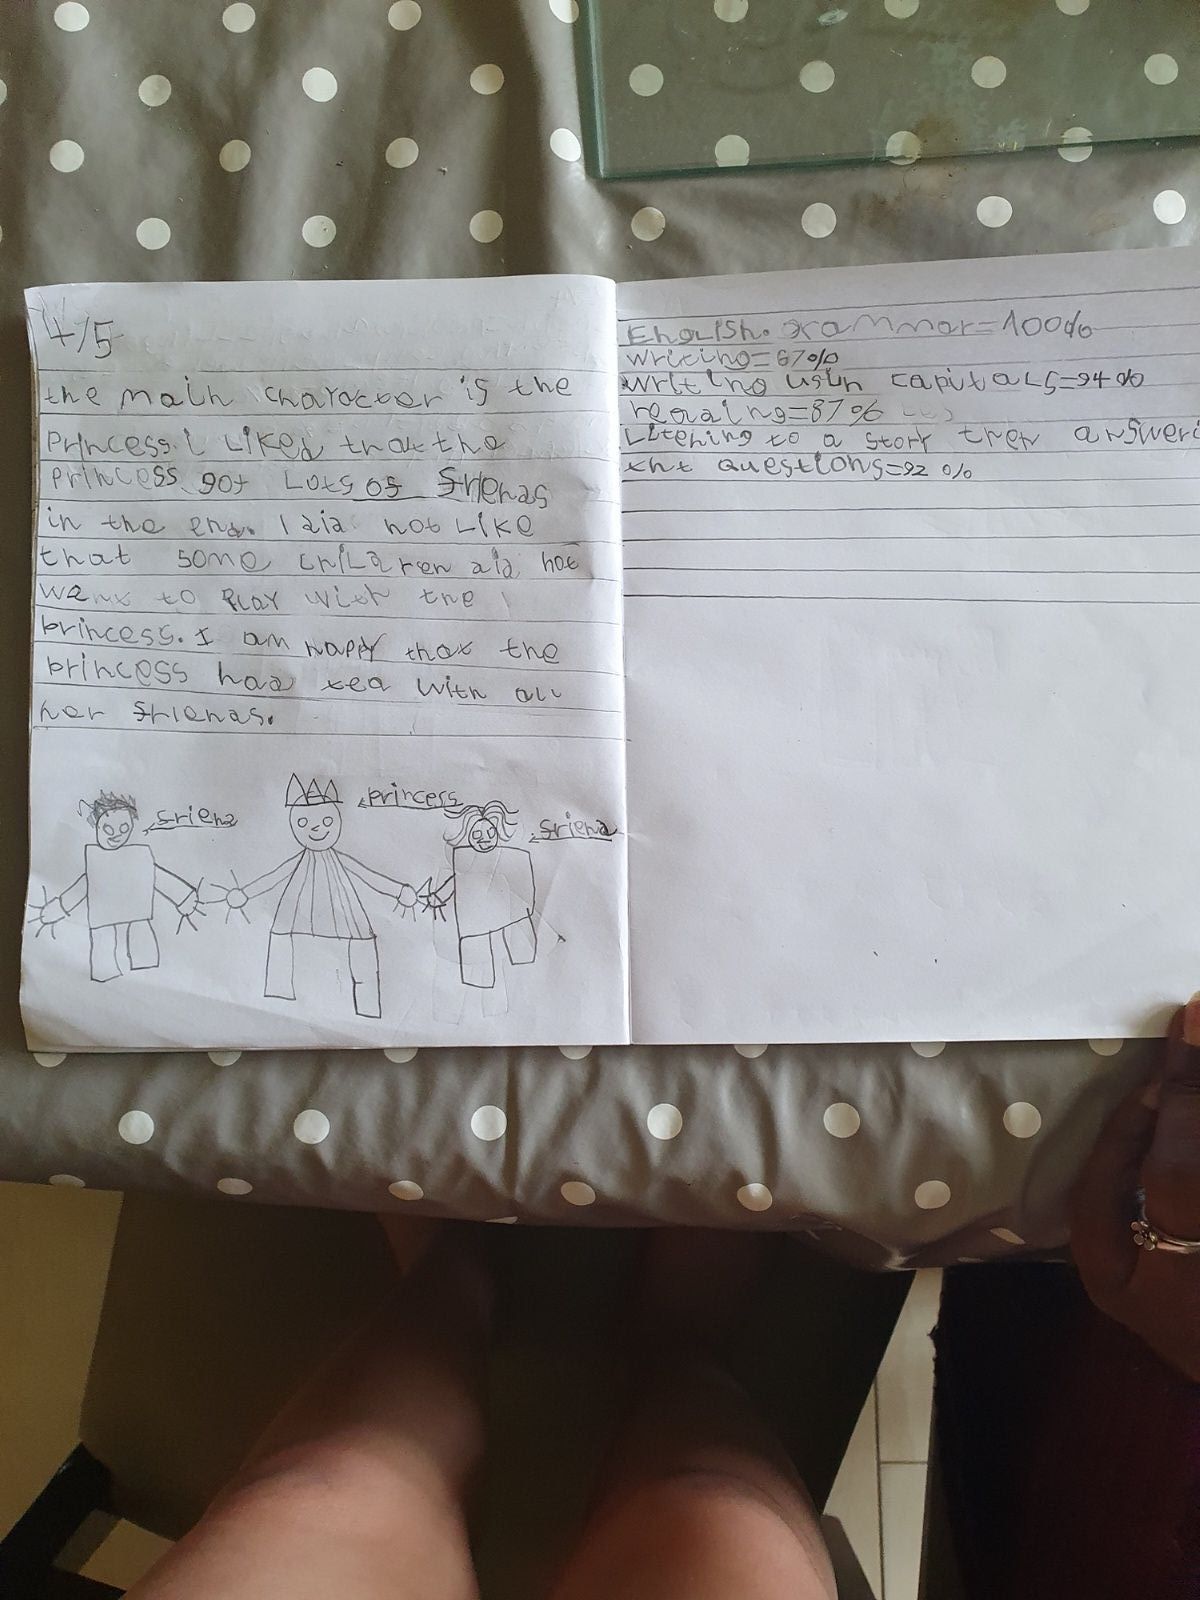 4/5
the main character is the
princess. i Liked that the
princess got Lots of friends
in the end. I did not Like
that some children did not
want to play with the
princess. I am happy that the
princess had tea with all
her friends.
friend
princess
friend
English. grammar=100%
writing=67%
writing usin capitaLs=94%
reading=87%
Listening to a story then answeri
tht questions=92%